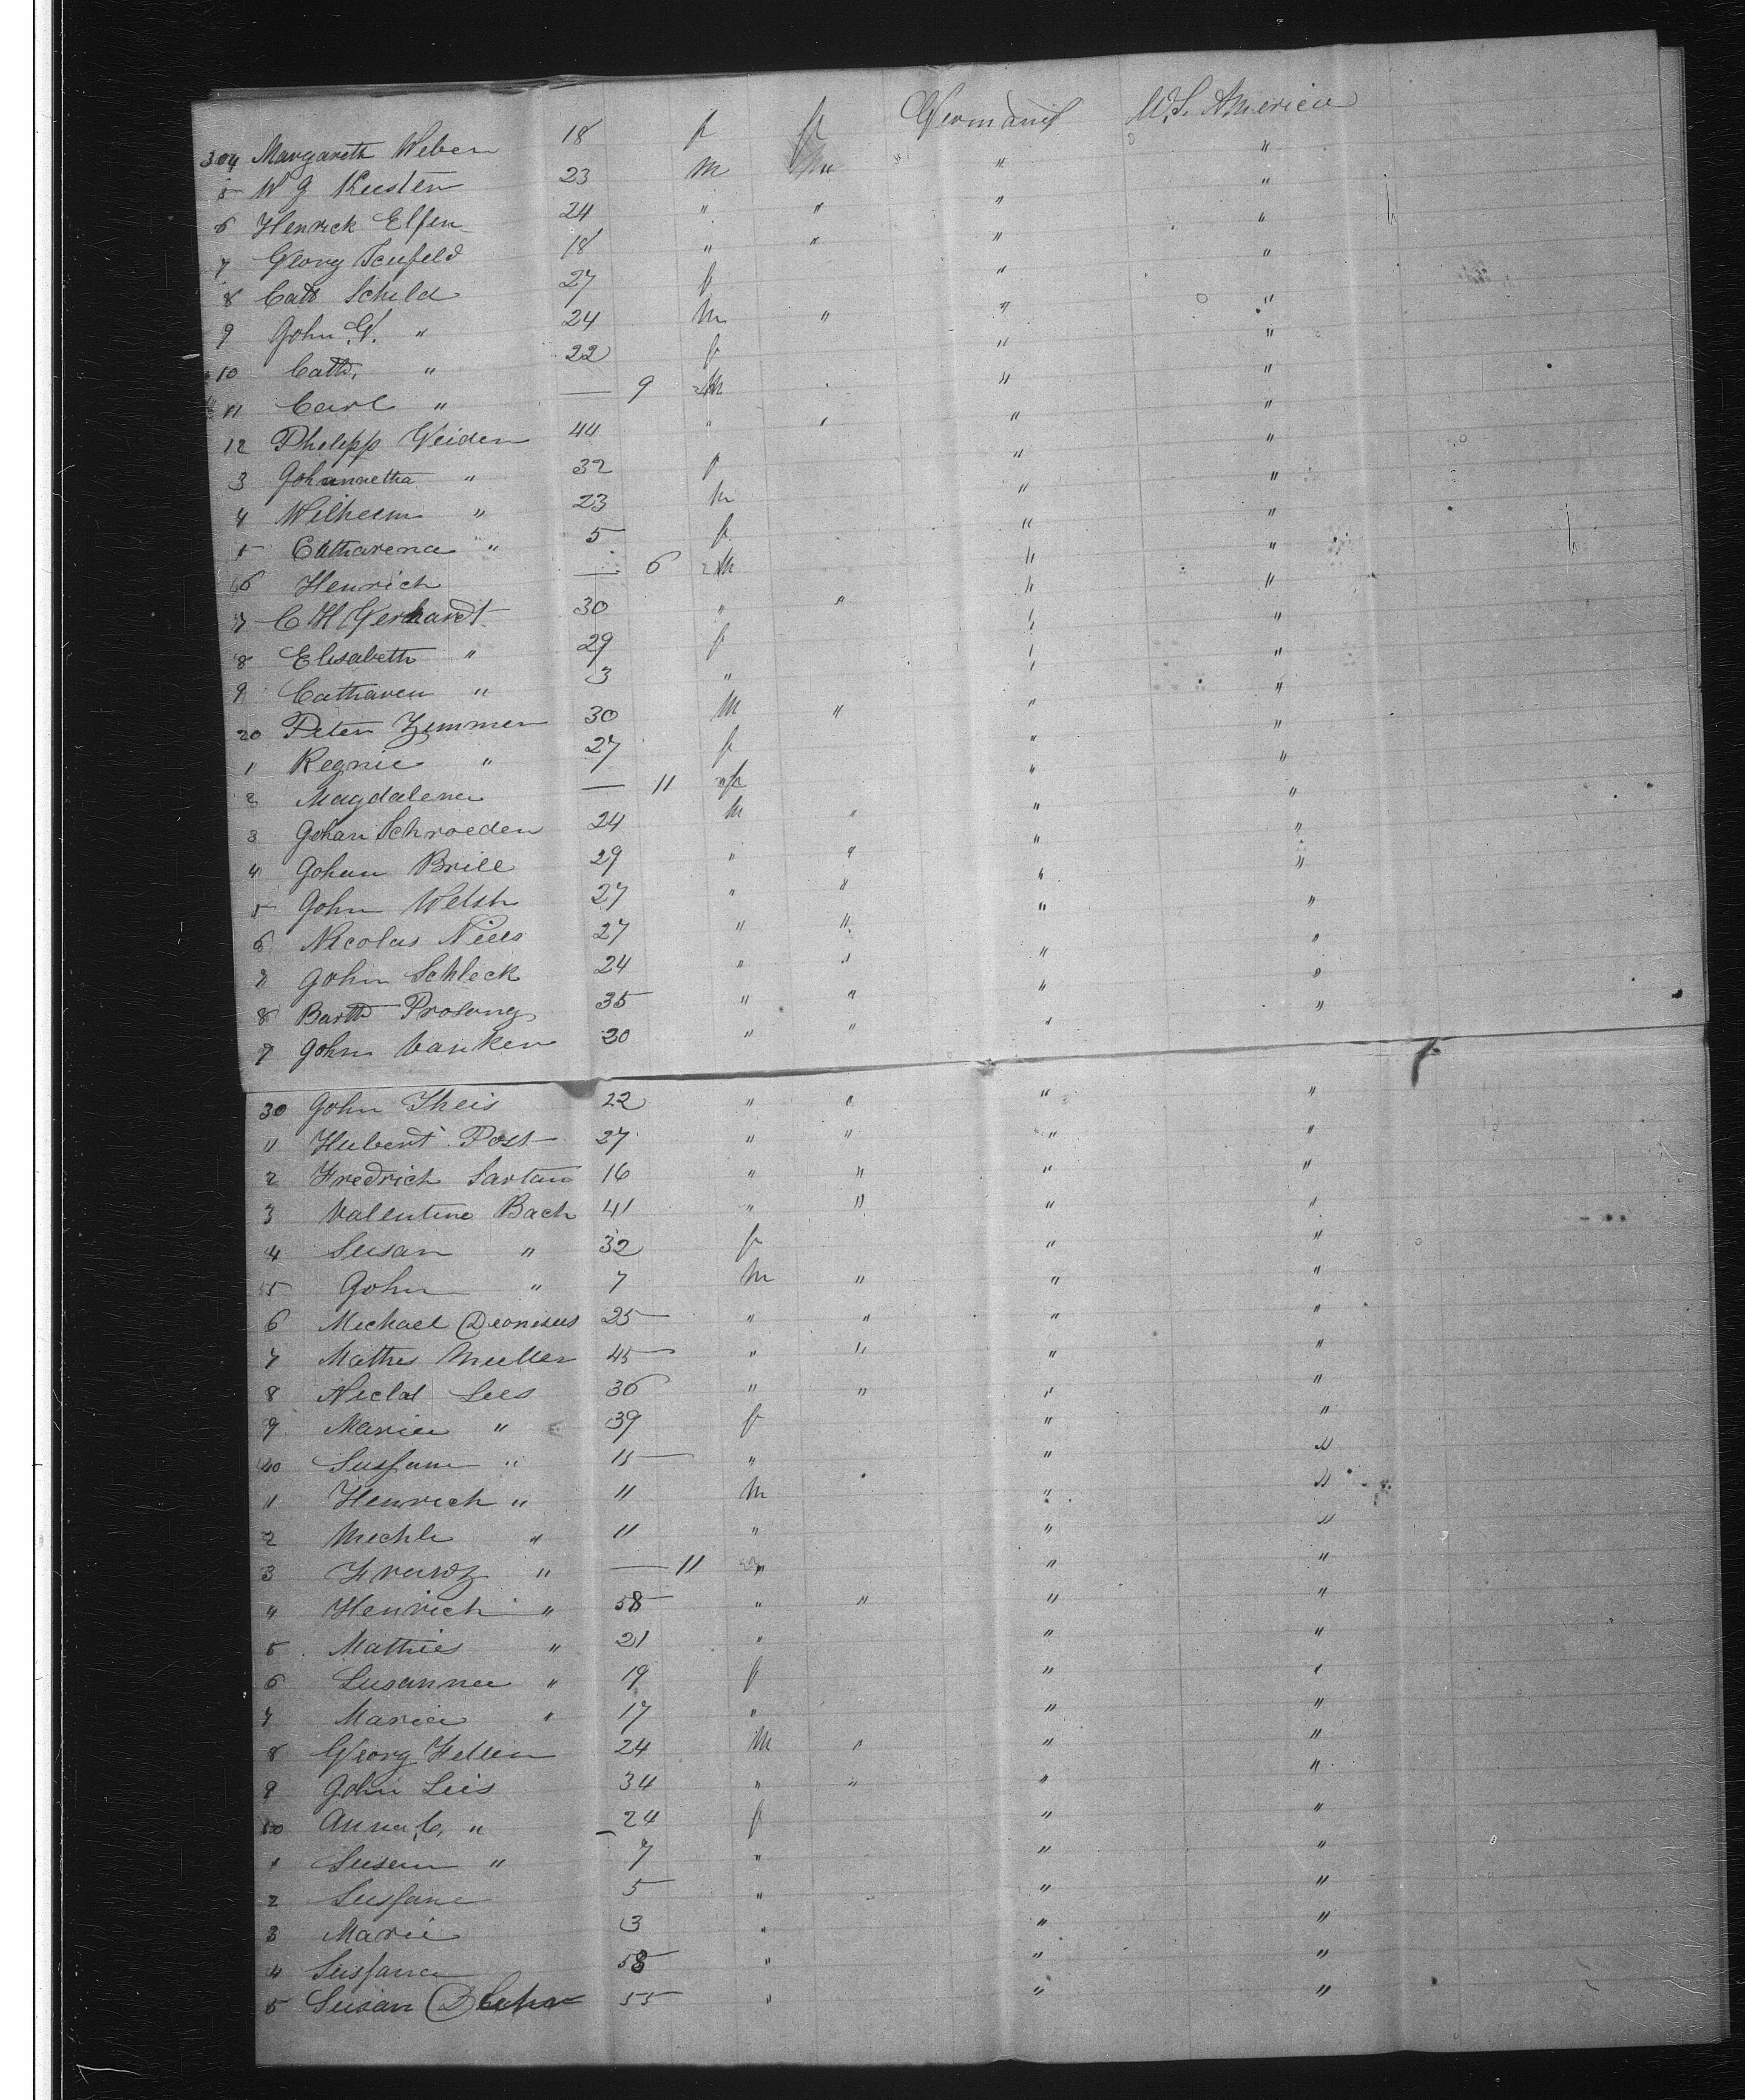 304 Margareth Weber 18 f f Germany U.S. America
5 W G Kusten 23 m " " "
6 Henrick Elfen 24 " " " "
7 Georg Seufeld 18 " " " "
8 Cath Schild 27 f " "
9 John G. " 24 m " " "
10 Cath. " 22 f " "
11 Carl " — 9 m " "
12 Philipp Weiden 44 " " " "
3 Johannetha " 32 f " "
4 Wilhelm " 23 m " "
5 Catharena " 5 f " "
6 Henrich — 6 m " "
7 C H Gerhardt 30 " " " "
8 Elisabeth " 29 f " "
9 Catharen " 3 " " "
20 Peter Zimmer 30 m " " "
1 Regnie " 27 f " "
2 Magdalena — 11 f " "
3 Johan Schroeden 24 m " " "
4 Johan Brill 29 " " " "
5 John Welsh 27 " " " "
6 Nicolas Nies 27 " " " "
7 John Schleck 24 " " " "
8 Barth Prolong 35 " " " "
9 John Vanken 30 " " " "
30 John Theis 22 " " " "
" Hubert Post 27 " " " "
2 Fredrich Sartan 16 " " " "
3 Valentine Bach 41 " " " "
4 Susan " 32 f " "
5 John " 7 m " " "
6 Michael Dionisus 25 " " " "
7 Mathes Muller 45 " " " "
8 Niclas Lies 36 " " " "
9 Maria " 39 f " "
40 Sussann " 15 " " "
" Henrich " 11 m " "
2 Michle " 11 " " "
3 Frantz " — 11 " " "
4 Henrich " 58 " " " "
5 Mathies " 21 " " "
6 Susanna " 19 f " "
7 Maria " 17 " " "
8 Georg Fellen 24 m " " "
9 John Leis 34 " " " "
50 Anna C. " 24 f " "
1 Susan " 7 " " "
2 Sussane 5 " " "
3 Marie 3 " " "
4 Sussanna 58 " " "
5 Susan 55 " " "